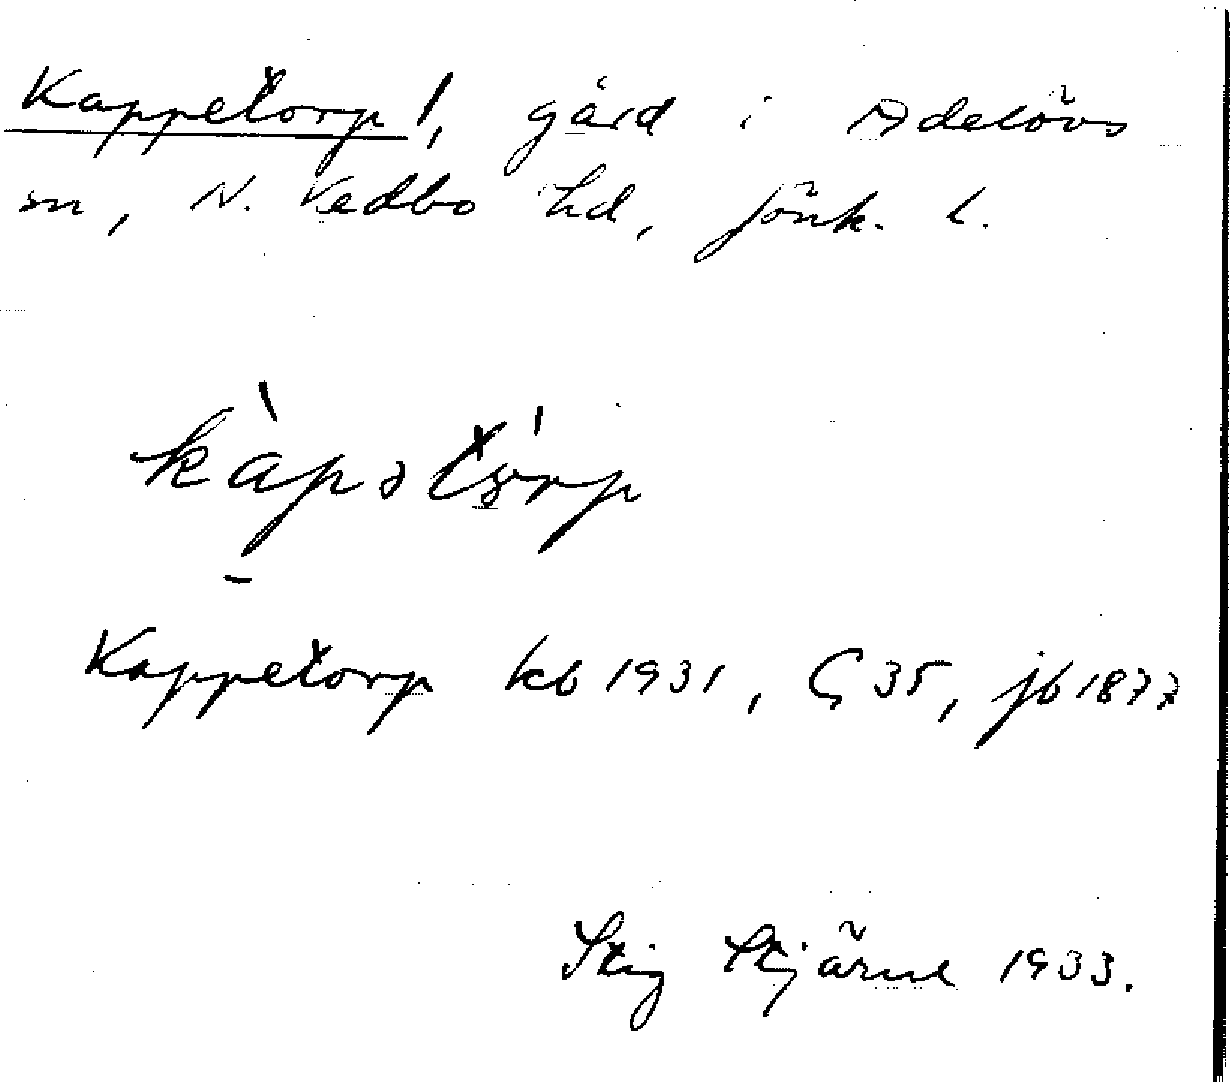 Kappetorp 1, gård i Adelövs
sn, N. Vedbo hd, Jönk. l.
kàpətór̩p
Kappetorp kb 1931, G 35, jb 1877
Stig Stjärne 1933.